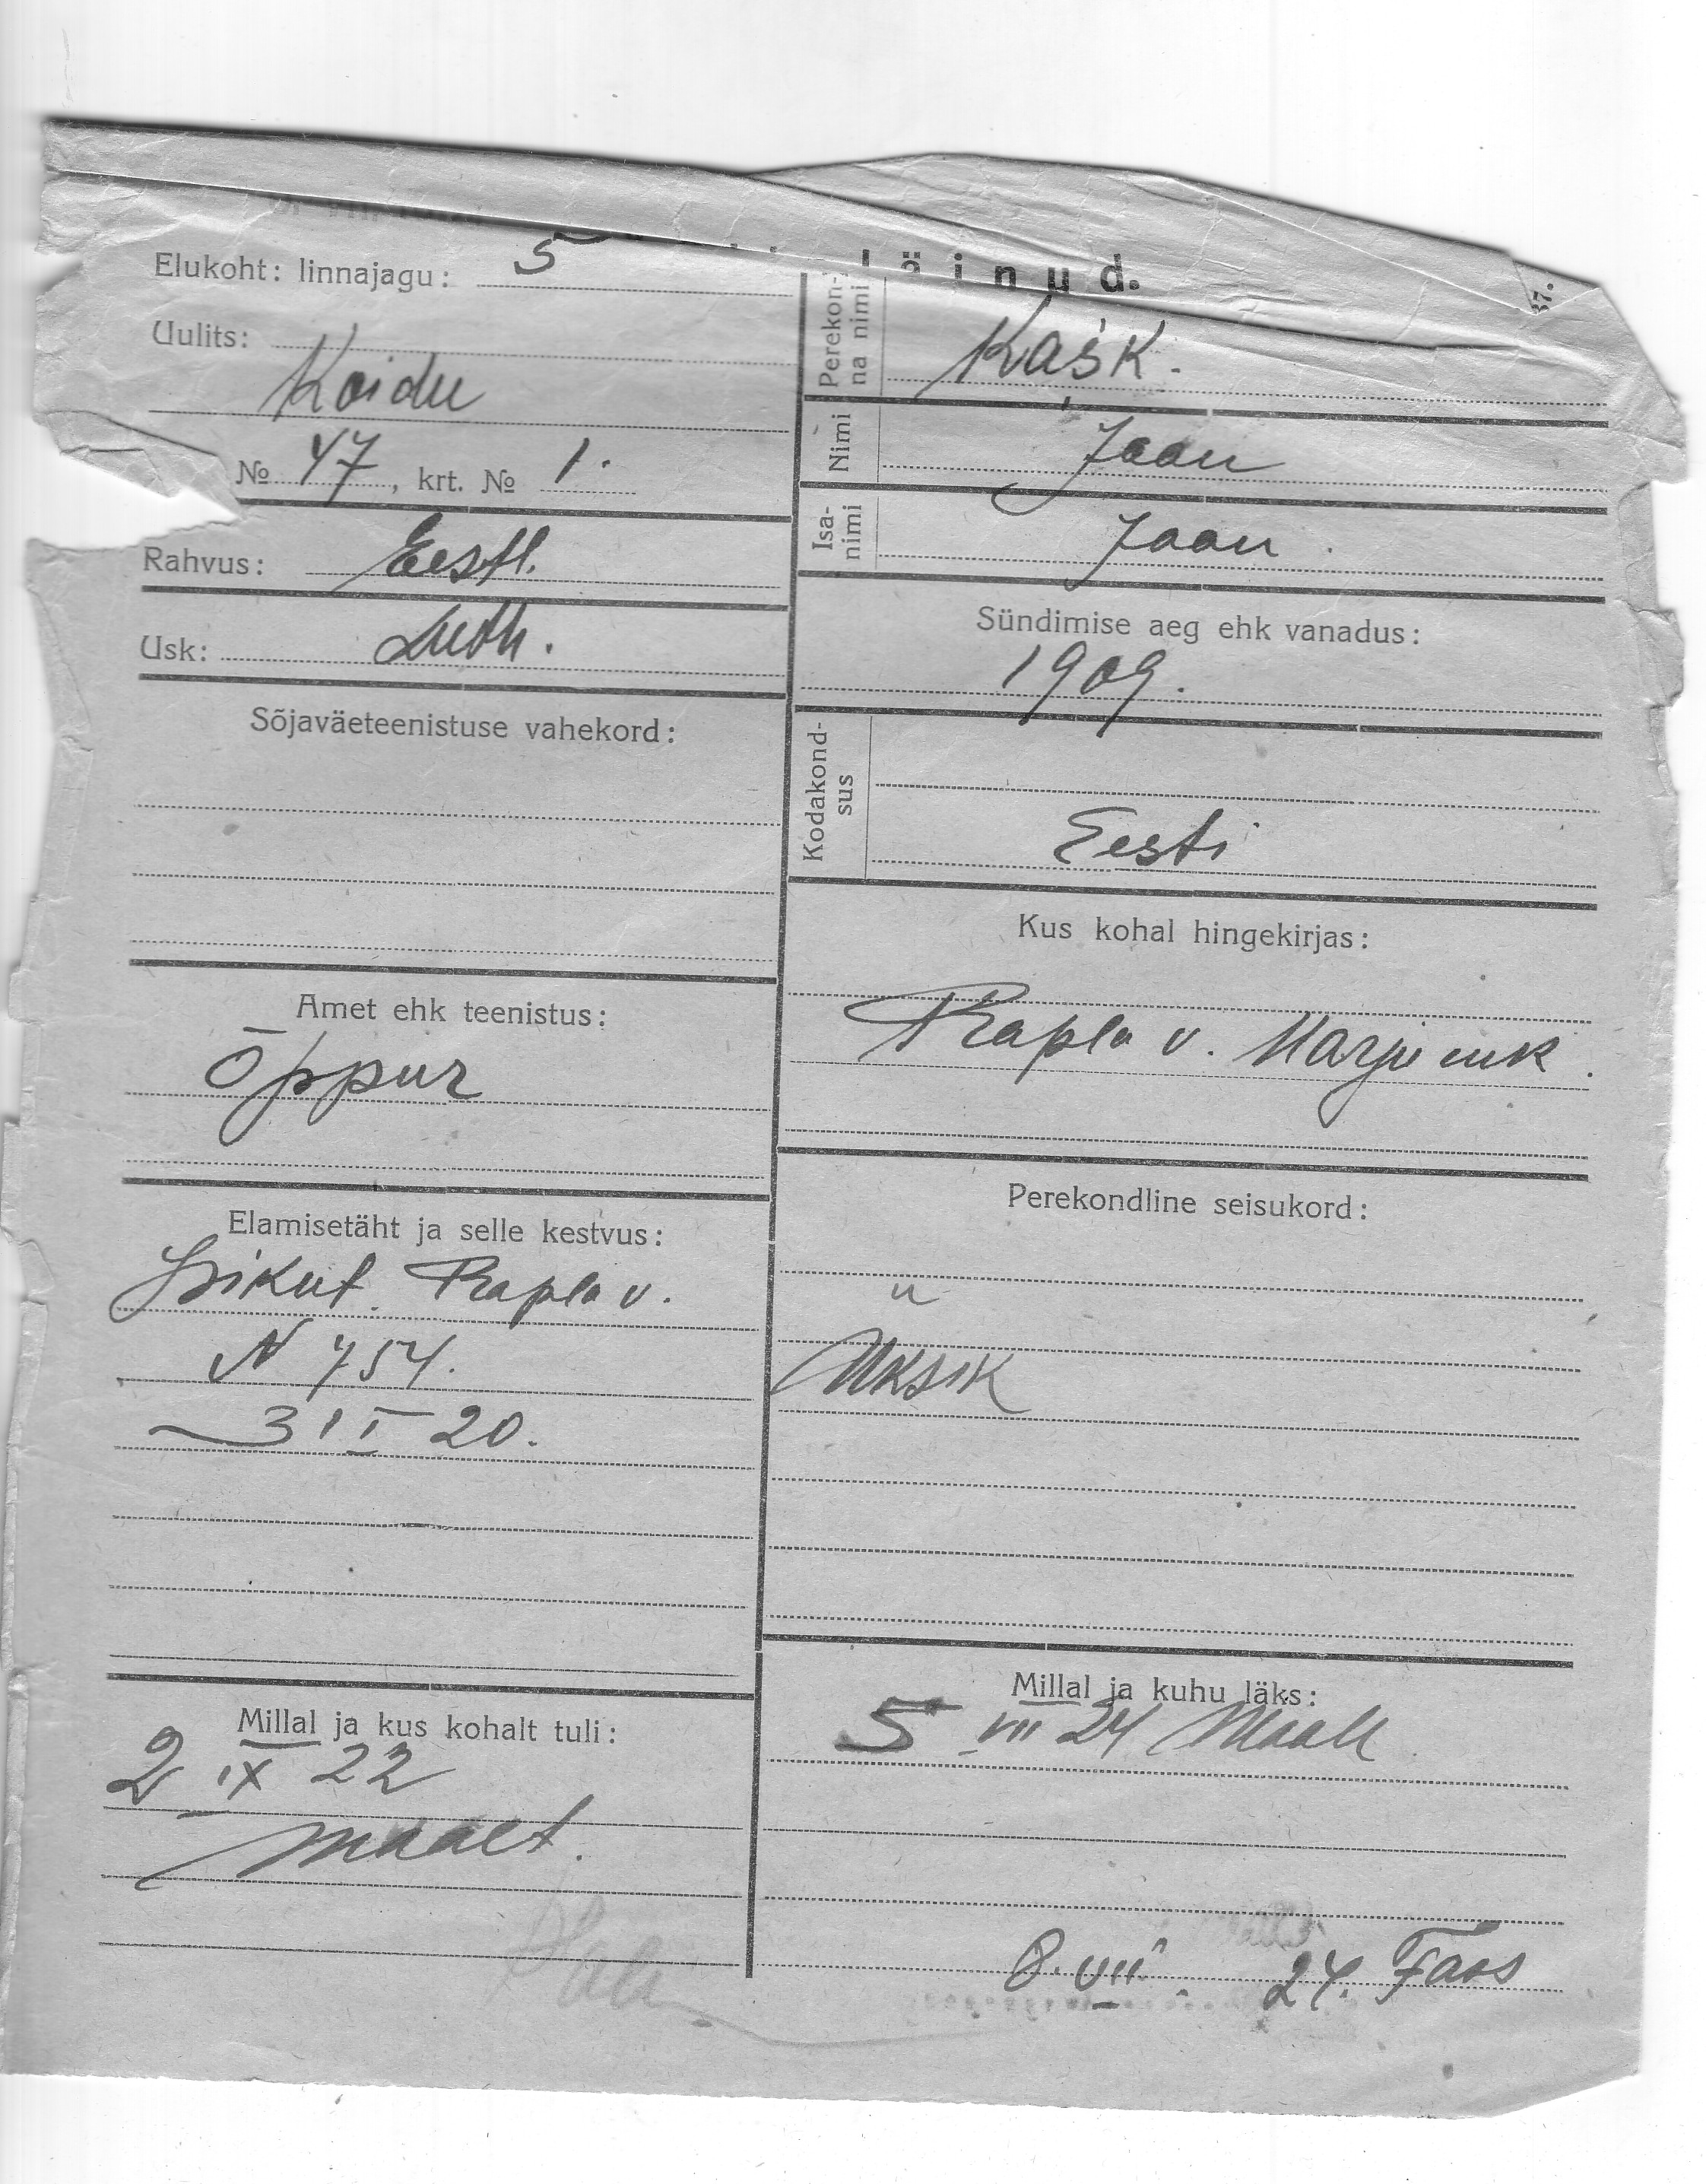 läinud.
Elukoht: linnajagu: 5
Uulits:
Koidu
№ 47, krt. № 1.
Rahvus: Eestl.
Usk: Luth.
Sõjaväeteenistuse vahekord:
Amet ehk teenistus:
Õppur
Elamisetäht ja selle kestvus:
Isikut. Rapla v.
N 754.
31 I 20.
Millal ja kus kohalt tuli:
2 IX 22
maalt.
Perekonna nimi Kask.
Nimi Jaan
Isanimi Jaan.
Sündimise aeg ehk vanadus:
1909.
Kodakondsus
Eesti
Kus kohal hingekirjas:
Rapla v. Harju mk.
Perekondline seisukord:
Üksik
Millal ja kuhu läks:
5 VII 24 Maale
8. VII. 24.